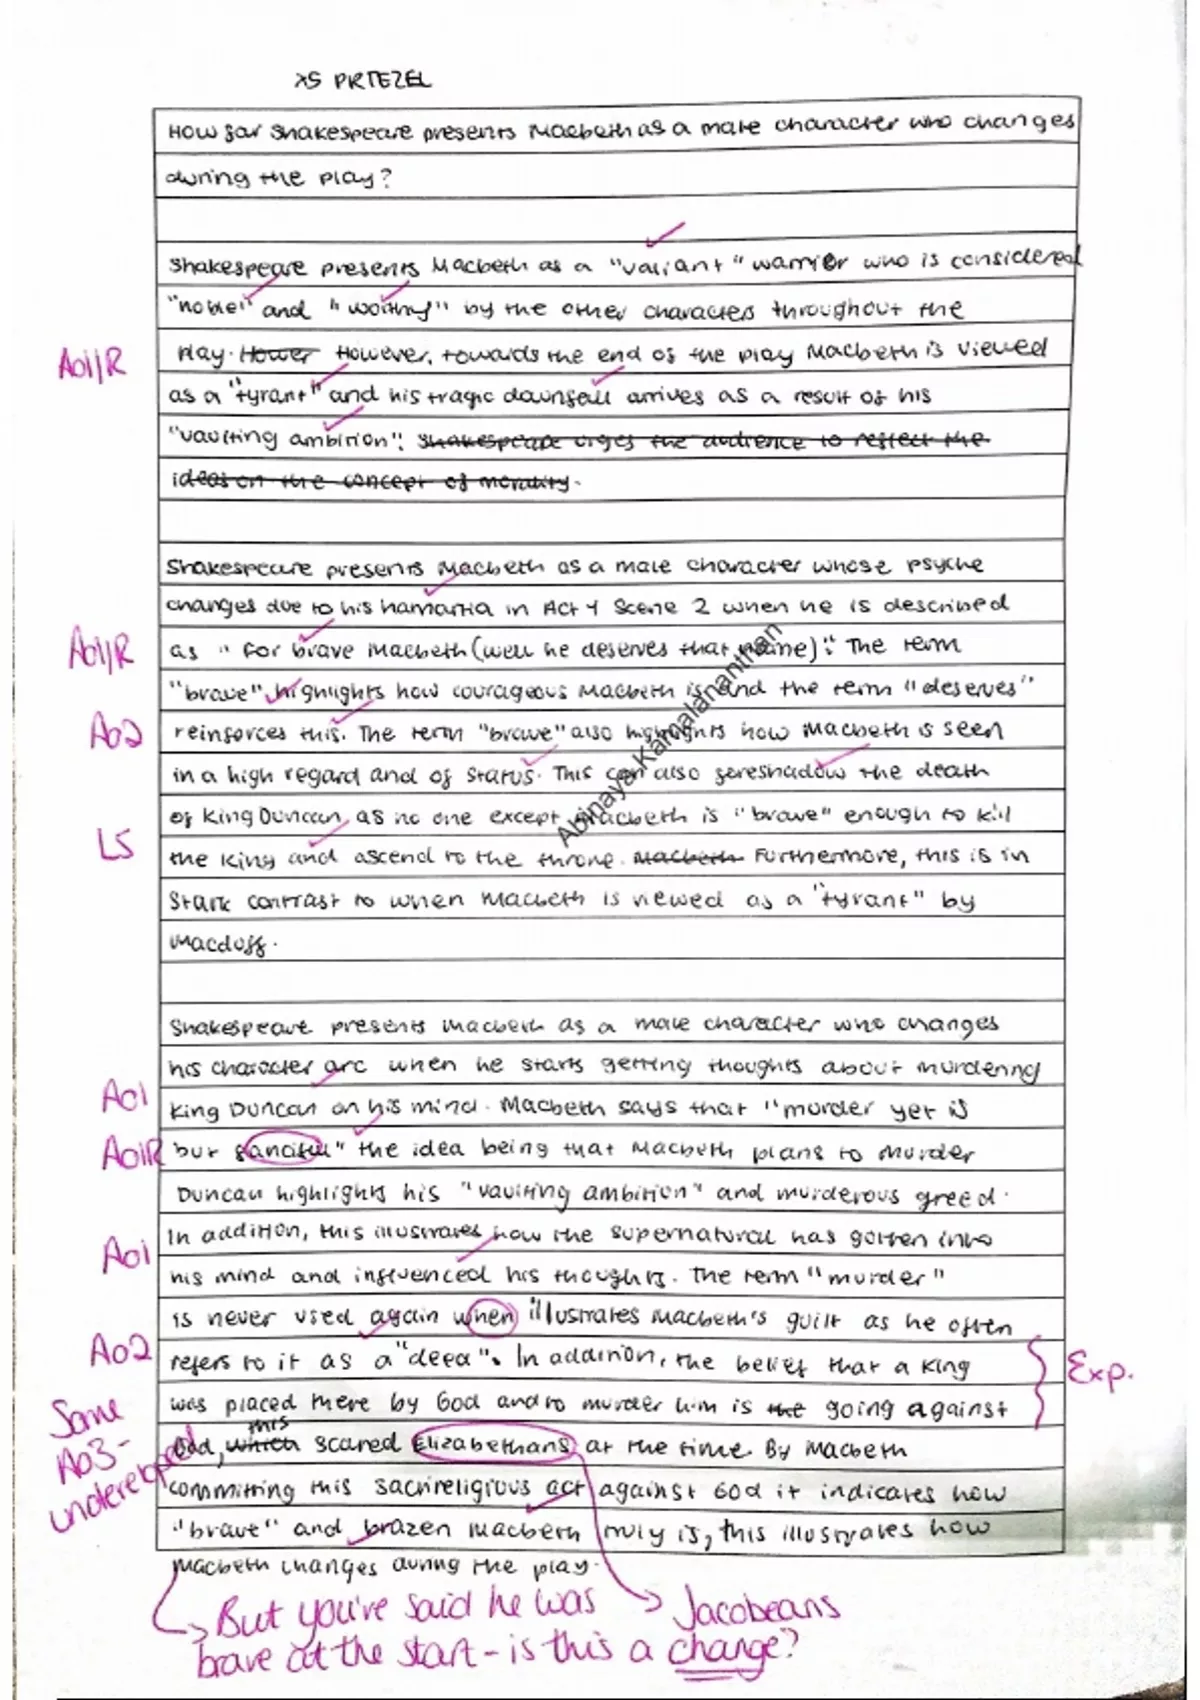 XS PRTEZEL
How far Shakespeare presents Macbeth as a male character who changes
during the play?
Shakespeare presents Macbeth as a "valiant" warrior who is considered
"noble" and "worthy" by the other characters throughout the
Ao1/R
play. Hower However, towards the end of the play Macbeth is viewed
as a "tyrant" and his tragic downfall arrives as a result of his
"vaulting ambition". Shakespeare urges the audience to reflect the
ideas on the concept of morality.
Shakespeare presents Macbeth as a male character whose psyche
changes due to his hamartia in Act 4 Scene 2 when he is described
Ao1/R
as "for brave Macbeth (well he deserves that name)". The term
"brave" highlights how courageous Macbeth is and the term "deserves"
Ao2
reinforces this. The term "brave" also highlights how Macbeth is seen
in a high regard and of status. This can also foreshadow the death
of King Duncan, as no one except Macbeth is "brave" enough to kill
LS
the King and ascend to the throne. Macbeth Furthermore, this is in
Stark contrast to when Macbeth is viewed as a "tyrant" by
Macduff.
Abinaya Kamalananthan
Shakespeare presents Macbeth as a male character who changes
his character arc when he starts getting thoughts about murdering
Ao1
King Duncan on his mind. Macbeth says that "murder yet is
Ao1R
but fanciful" the idea being that Macbeth plans to murder
Duncan highlights his "vaulting ambition" and murderous greed.
In addition, this illustrates how the supernatural has gotten into
Ao1
his mind and influenced his thoughts. The term "murder"
is never used again when illustrates Macbeth's guilt as he often
Ao2
refers to it as a "deed". In addition, the belief that a King
Exp.
was placed there by God and to murder him is the going against
Some
Ao3-
God, which this scared Elizabethans at the time. By Macbeth
committing this sacrireligious act against God it indicates how
"brave" and brazen Macbeth truly is, this illustrates how
Macbeth changes during the play.
But you've said he was
brave at the start - is this a change?
Jacobeans